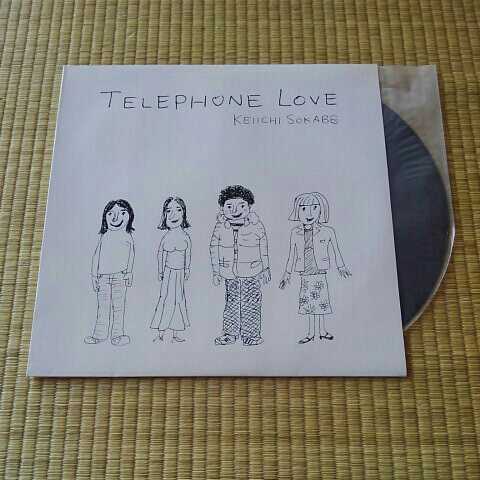 TELEPHONE LOVE
KEIICHI SOKABE